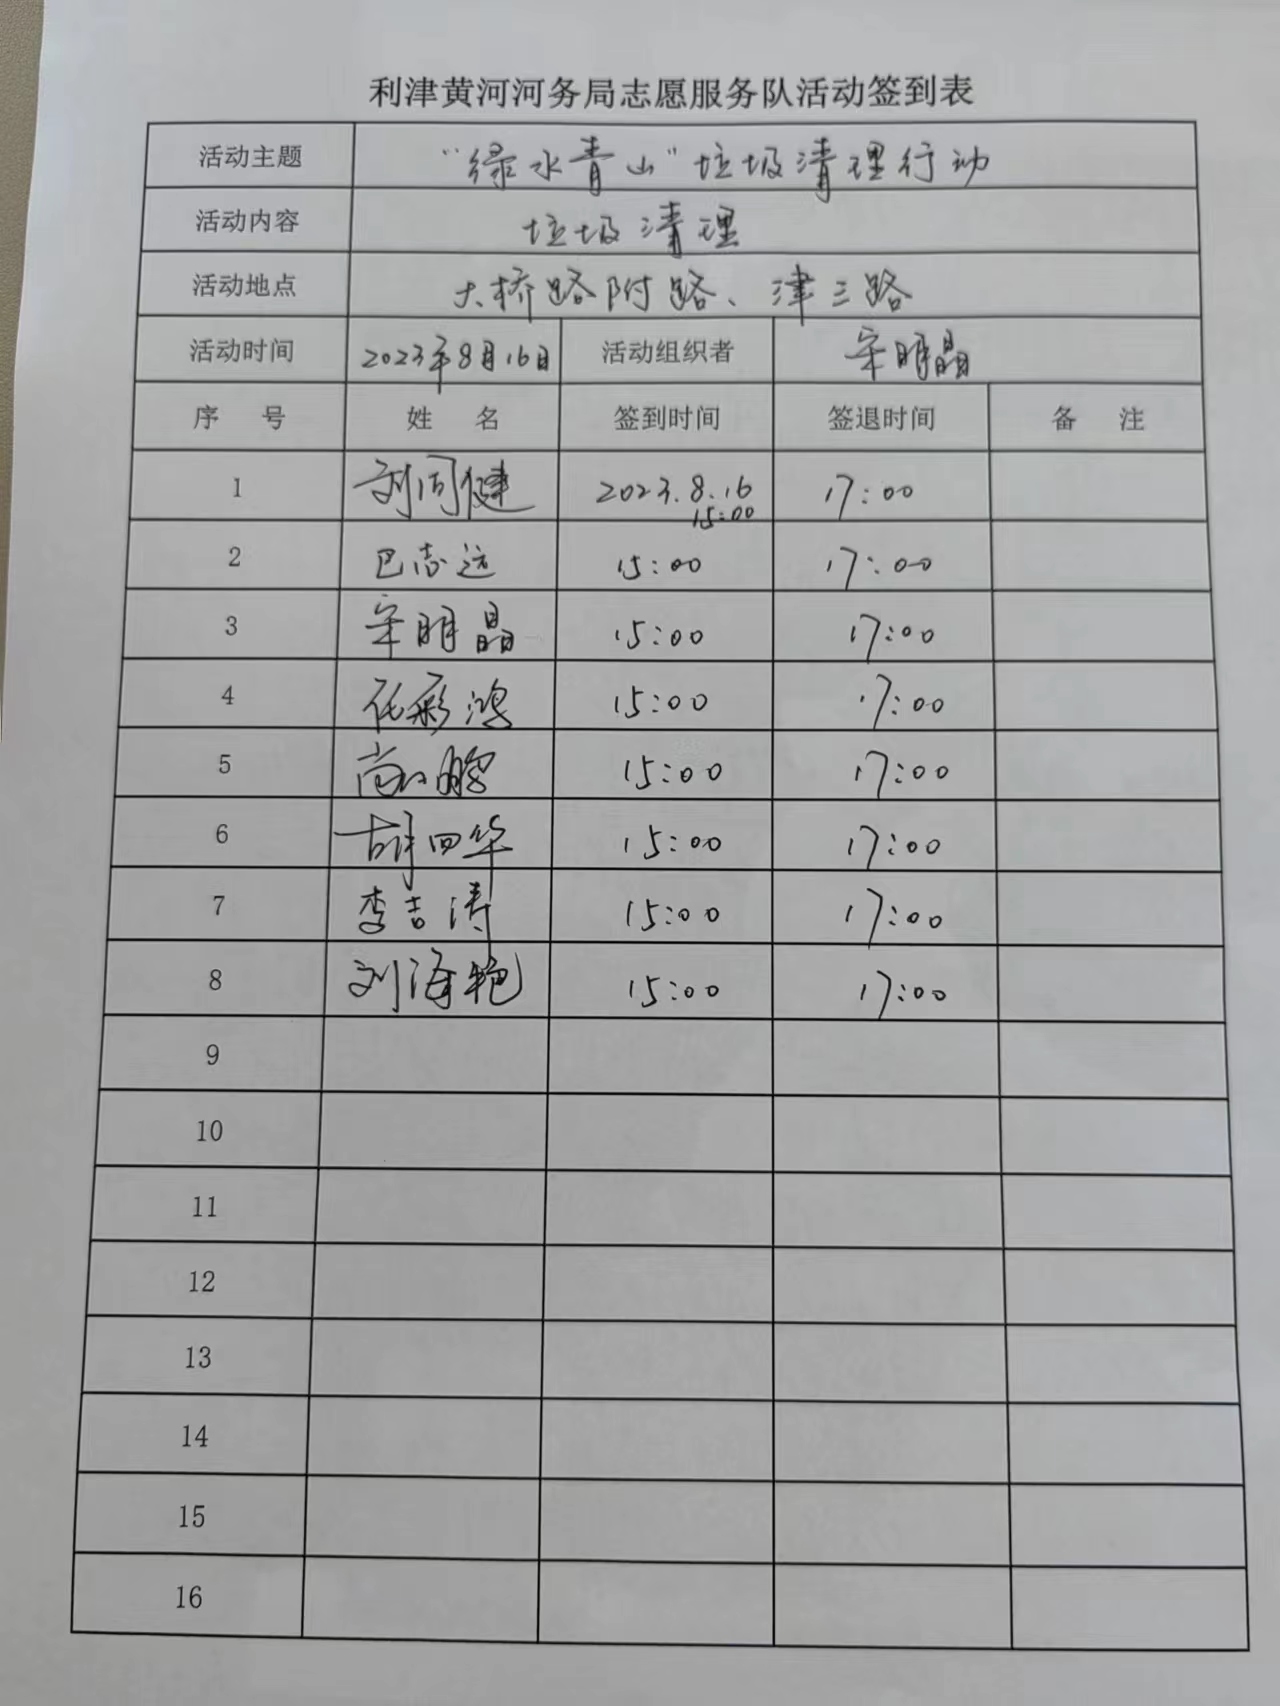 利津黄河河务局志愿服务队活动签到表
活动主题 “绿水青山”垃圾清理行动
活动内容 垃圾清理
活动地点 大桥路附路、津三路
活动时间 2023年8月16日 活动组织者 宋明晶
序 号 姓 名 签到时间 签退时间 备 注
1 刘同健 2023.8.16 17:00
15:00
2 巴志远 15:00 17:00
3 宋明晶 15:00 17:00
4 任彩鸿 15:00 17:00
5 尚 15:00 17:00
6 胡四华 15:00 17:00
7 李吉涛 15:00 17:00
8 刘海艳 15:00 17:00
9
10
11
12
13
14
15
16